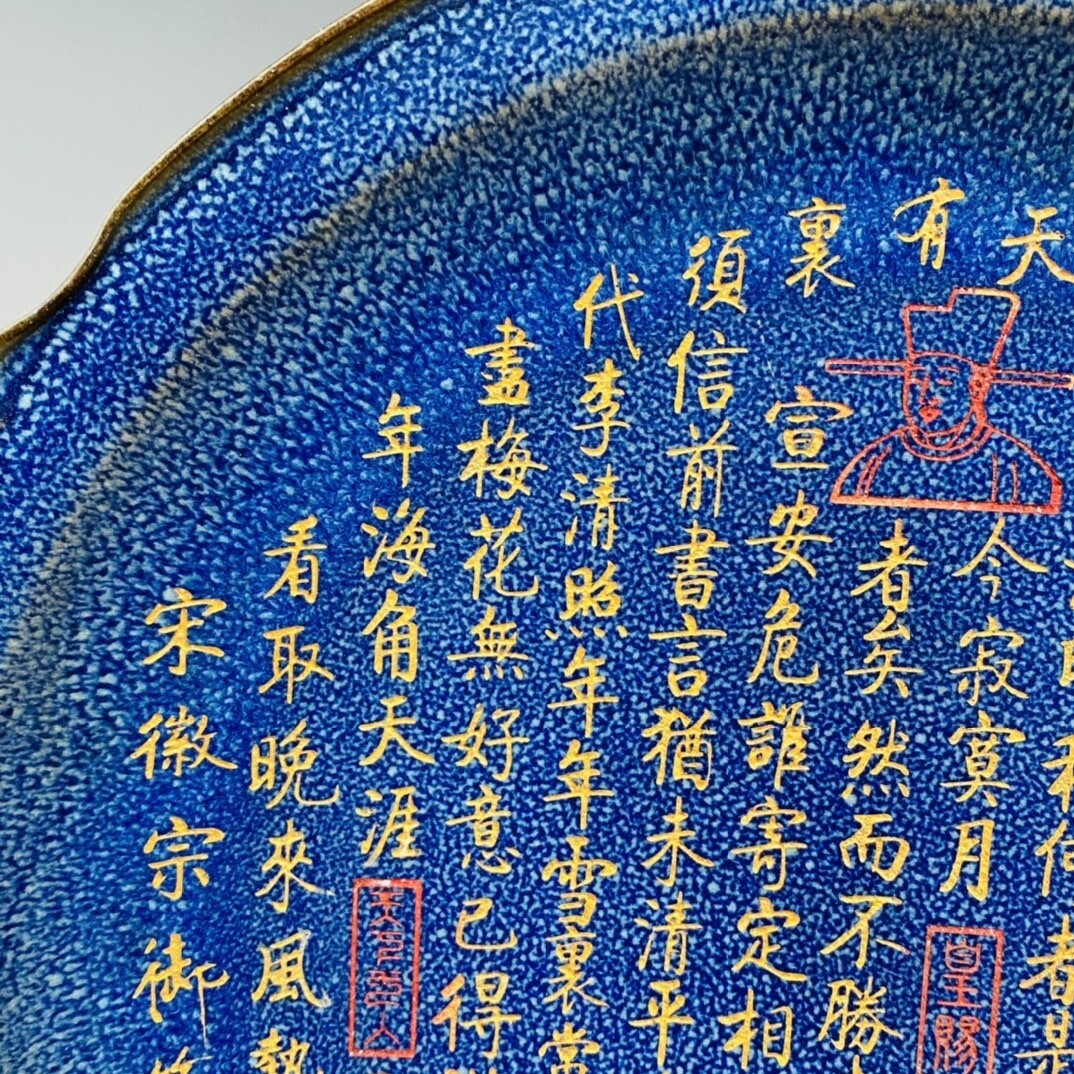 天今寂寞月
皇王賜
有者矣然而不勝
裏宣安危誰寄定相
須信前書言猶未清平
代李清照年年雪裏常
畫梅花無好意已得
年海角天涯
看取晚來風勢
宋徽宗御